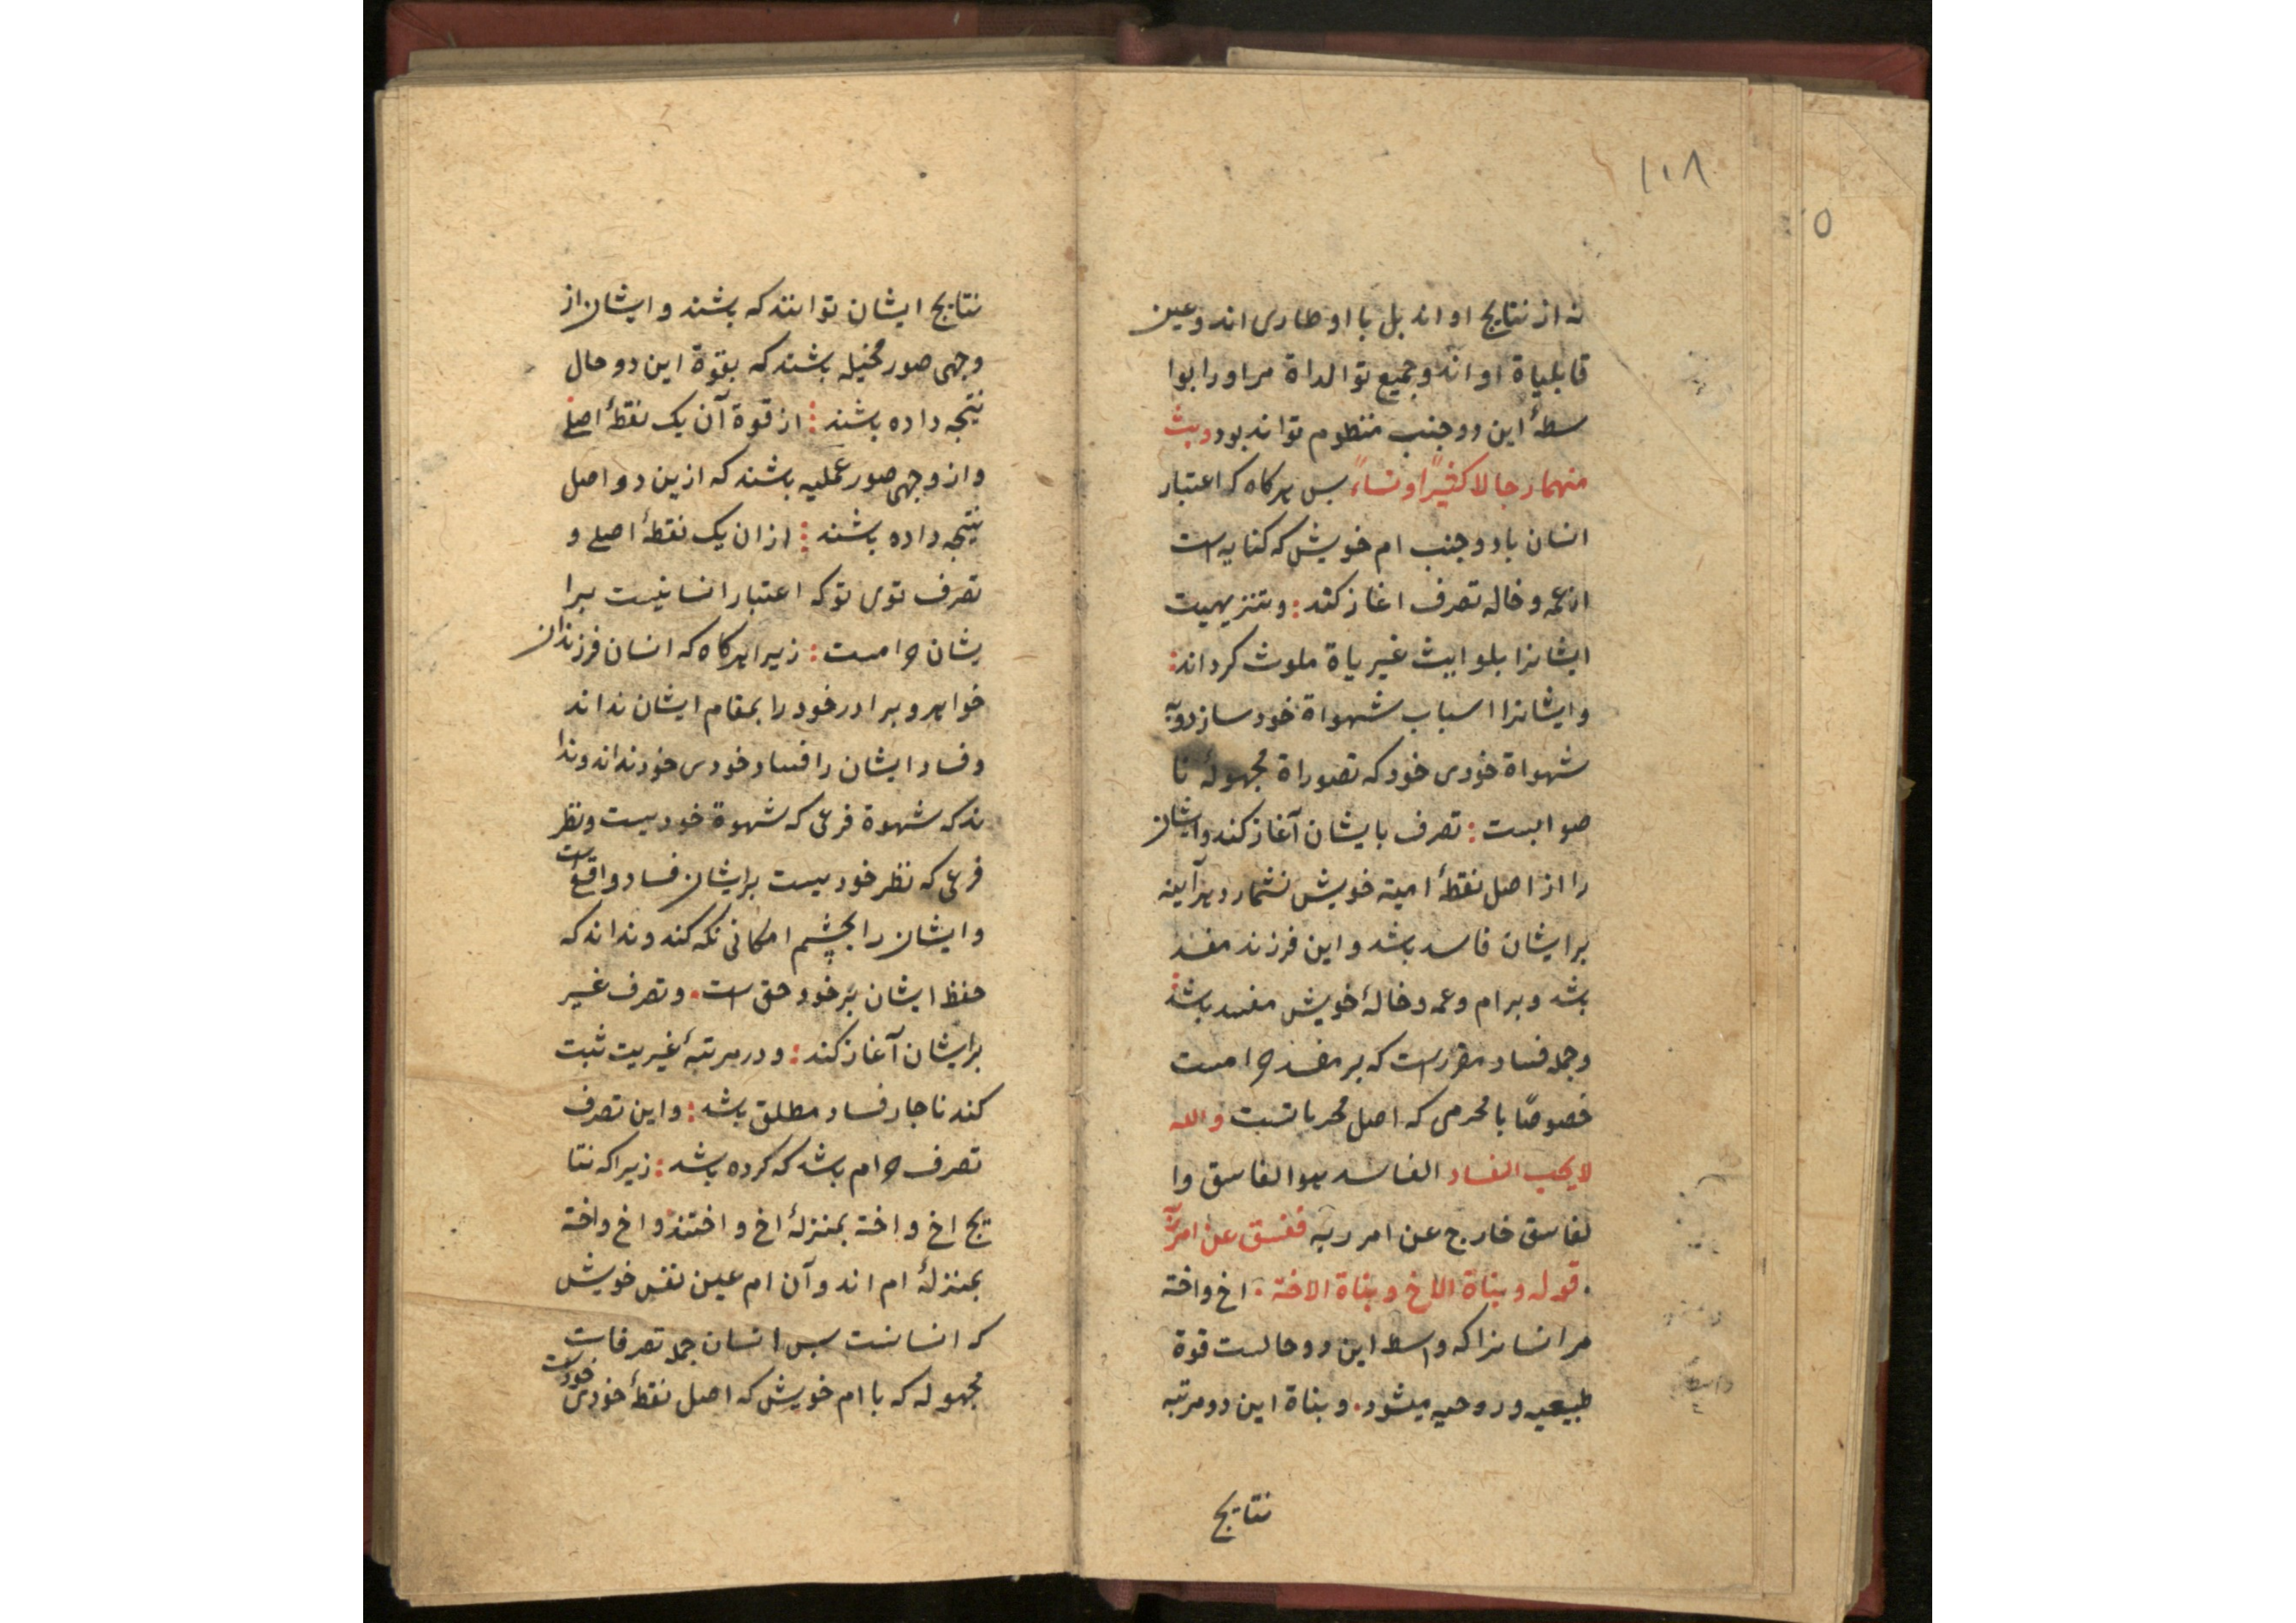 ۱۱۸
۵
نه از نتایج او اند بل با او طاری اند و عین
قابلیاة او اند و جمیع توالداة مر او را بوا
سطهٔ این دو جنب منظوم تواند بود وبث
منهما رجالا کثیرًا ونساءً بس هر کاه که اعتبار
انسان با دو جنب ام خویش که کنایه است
از عمه و خاله تصرف اغاز کند : و تنزیهیت
ایشانرا بلواییث غیریاة ملوث کرداند :
و ایشانرا اسباب شهواة خود سازد و به
شهواة خودی خود که تصوراة مجهولهٔ نا
صوابست : تصرف بایشان آغاز کند و ایشان
را از اصل نقطهٔ امیه خویش نشمارد هر آینه
بر ایشان فاسد باشد و این فرزند مفسد
باشد و بر ام و عمه و خالهٔ خویش مفسد باشد
و جمله فساد مقرر است که بر مفسد حرامست
خصوصًا با محرمی که اصل محرماتست والله
لا یحب الفساد الفاسد هو الفاسق وا
لفاسق خارج عن امر ربه ففسق عن امر ربه
. قوله وبناة الاخ وبناة الاخة . اخ و اخة
مر انسانرا که واسط این دو حالست قوة
طبیعیه و روحیه میشود . و بناة این دو مرتبه
نتایج
نتایج ایشان توانند که باشند و ایشان از
وجهی صور مخیله باشند که بقوة این دو حال
نتیجه داده باشند : از قوة آن یک نقطهٔ اصلی
و از وجهی صور عملیه باشند که ازین دو اصل
نتیجه داده باشند : از ان یک نقطهٔ اصلی و
تصرف توی تو که اعتبار انسانیست برا
یشان حرامست : زیرا هر کاه که انسان فرزندان
خواهر و برادر خود را بمقام ایشان نداند
و فساد ایشان را فساد خودی خود نداند و ندا
ند که شهوة فرعی که شهوة خودیست و نظر
فرعی که نظر خودیست بر ایشان فساد واقع است
و ایشان را بچشم امکانی نکه کند و نداند که
حفظ ایشان بر خود حق است . و تصرف غیر
بر ایشان آغاز کند : و در مرتبهٔ غیریت ثبت
کند ناچار فساد مطلق باشد : و این تصرف
تصرف حرام باشد که کرده باشد : زیرا که نتا
یج اخ و اخة بمنزلهٔ اخ و اختند و اخ و اخة
بمنزلهٔ ام اند و آن ام عین نفس خویش
که انسانست بس انسان جمله تصرفات
مجهوله که با ام خویش که اصل نقطهٔ خودی خود است